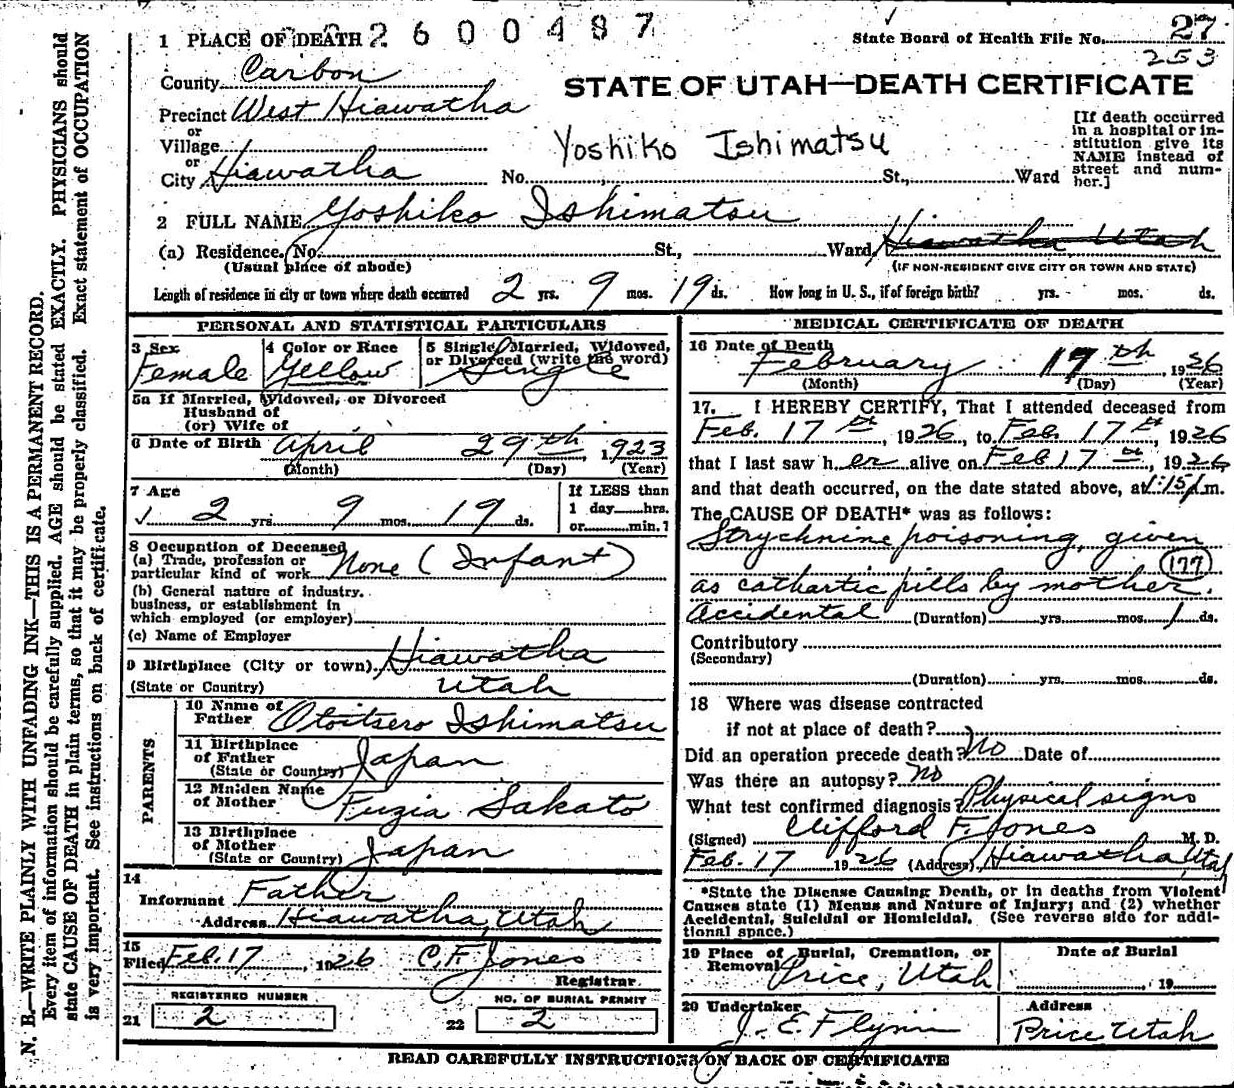 2600487
State Board of Health File No. 27
253
1 PLACE OF DEATH
County Carbon
STATE OF UTAH—DEATH CERTIFICATE
Precinct West Hiawatha
or
Village
or
City Hiawatha
Yoshiko Ishimatsu
No. St., Ward
[If death occurred
in a hospital or in-
stitution give its
NAME instead of
street and num-
ber.]
2 FULL NAME Yoshiko Ishimatsu
(a) Residence. No. St., Ward, Hiawatha Utah
(Usual place of abode)
(IF NON-RESIDENT GIVE CITY OR TOWN AND STATE)
Length of residence in city or town where death occurred 2 yrs. 9 mos. 19 ds. How long in U. S., if of foreign birth? yrs. mos. ds.
PERSONAL AND STATISTICAL PARTICULARS
3 Sex
Female
4 Color or Race
Yellow
5 Single, Married, Widowed,
or Divorced (write the word)
Single
5a If Married, Widowed, or Divorced
Husband of
(or) Wife of
6 Date of Birth April 29th, 1923
(Month) (Day) (Year)
7 Age
2 yrs. 9 mos. 19 ds.
If LESS than
1 day hrs.
or min. ?
8 Occupation of Deceased
(a) Trade, profession or
particular kind of work None (Infant)
(b) General nature of industry.
business, or establishment in
which employed (or employer)
(c) Name of Employer
9 Birthplace (City or town) Hiawatha
(State or Country) Utah
PARENTS
10 Name of
Father Otoitsero Ishimatsu
11 Birthplace
of Father
(State or Country) Japan
12 Maiden Name
of Mother Fuzia Sakato
13 Birthplace
of Mother
(State or Country) Japan
14
Informant Father
Address Hiawatha, Utah
15
Filed Feb. 17, 1926 C.F. Jones
Registrar
REGISTERED NUMBER
21 2
NO. OF BURIAL PERMIT
22 2
MEDICAL CERTIFICATE OF DEATH
16 Date of Death
February 17th, 1926
(Month) (Day) (Year)
17. I HEREBY CERTIFY, That I attended deceased from
Feb. 17th, 1926, to Feb. 17th, 1926
that I last saw her alive on Feb 17th, 1926
and that death occurred, on the date stated above, at 1:15 m.
The CAUSE OF DEATH* was as follows:
Strychnine poisoning, given
177
as cathartic pills by mother.
Accidental (Duration) yrs. mos. 1 ds.
Contributory
(Secondary)
(Duration) yrs. mos. ds.
18 Where was disease contracted
if not at place of death?
Did an operation precede death? No Date of
Was there an autopsy? No
What test confirmed diagnosis? Physical signs
(Signed) Clifford F. Jones M. D.
Feb. 17 1926 (Address) Hiawatha, Utah
*State the Disease Causing Death, or in deaths from Violent
Causes state (1) Means and Nature of Injury; and (2) whether
Accidental, Suicidal or Homicidal. (See reverse side for addi-
tional space.)
19 Place of Burial, Cremation, or
Removal Price, Utah
Date of Burial
, 19
20 Undertaker
J. E. Flynn
Address
Price Utah
READ CAREFULLY INSTRUCTIONS ON BACK OF CERTIFICATE
N. B.—WRITE PLAINLY WITH UNFADING INK—THIS IS A PERMANENT RECORD.
Every item of information should be carefully supplied. AGE should be stated EXACTLY. PHYSICIANS should
state CAUSE OF DEATH in plain terms, so that it may be properly classified. Exact statement of OCCUPATION
is very important. See instructions on back of certificate.